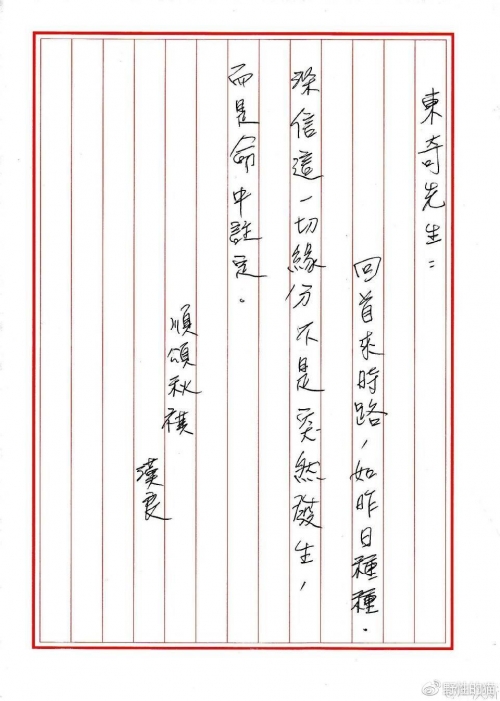 東奇先生：
回首來時路，如昨日種種．
深信這一切緣分不是突然發生，
而是命中註定．
順頌秋祺
漢良